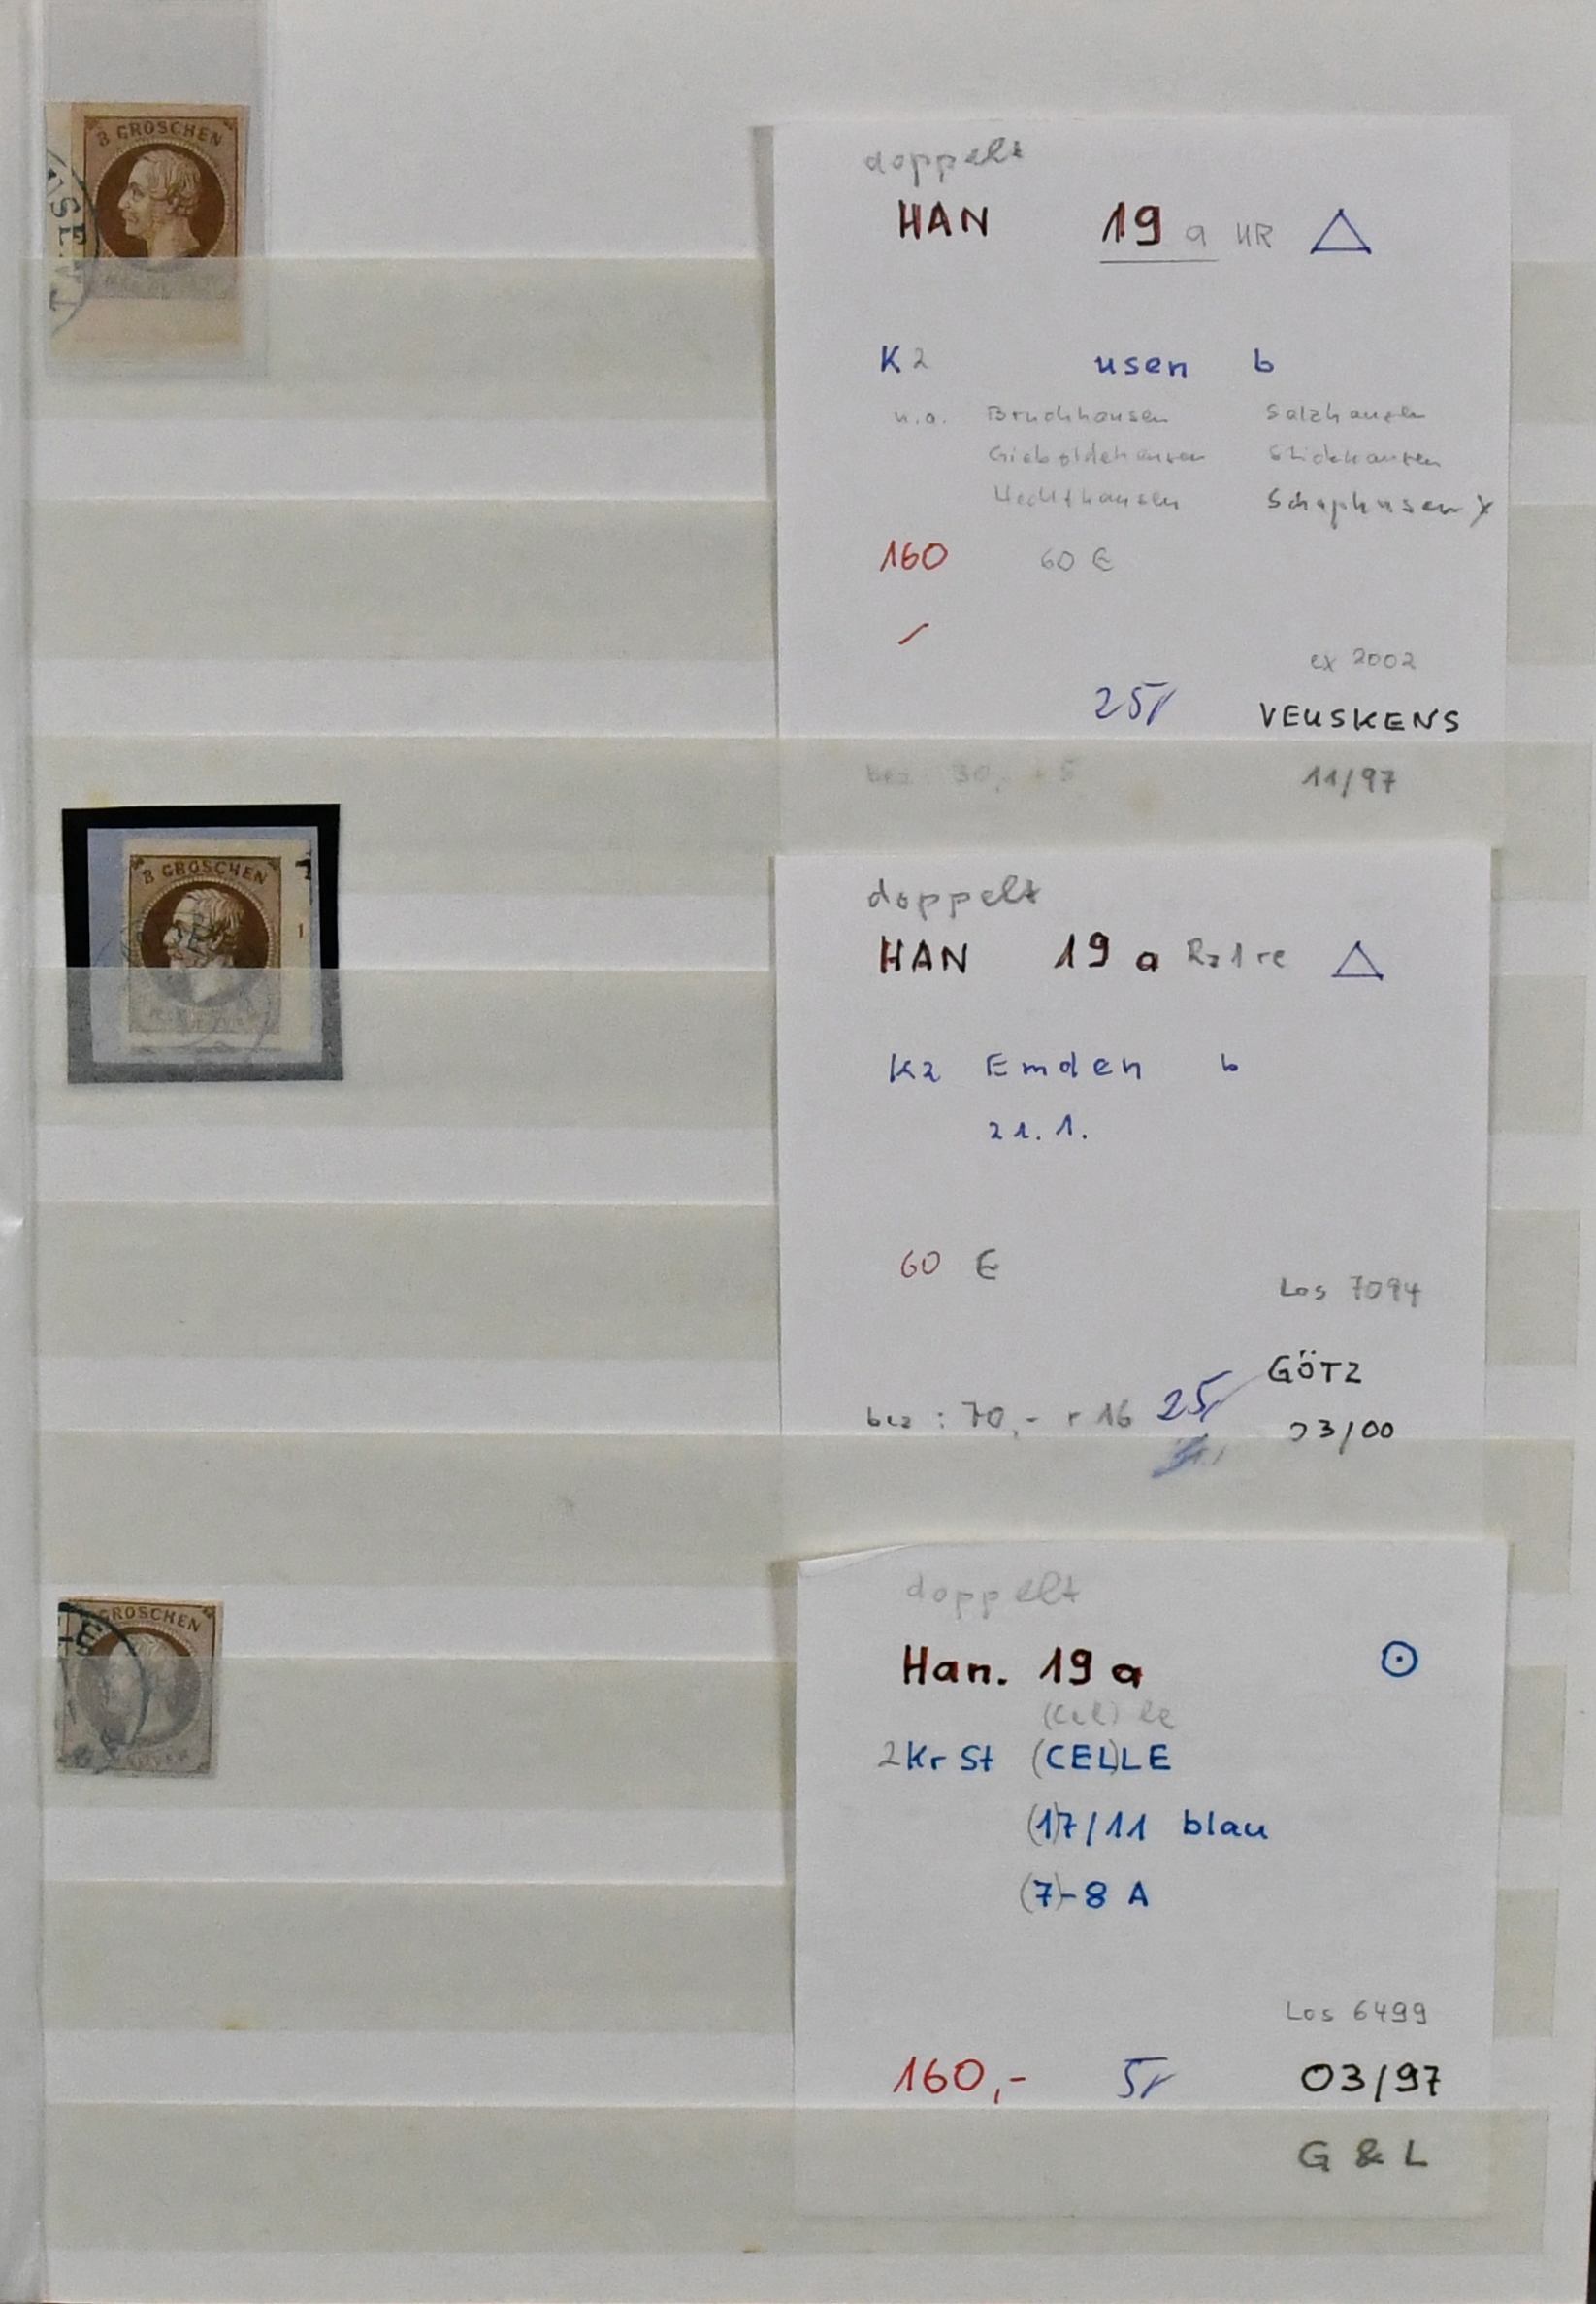 3 GROSCHEN
USEN
doppelt
HAN 19 a UR △
K2 usen b
u.a. Bruchhausen Salzhausen
Gieboldehausen Stickhausen
Hechthausen Schaphusen
160 60 €
ex 2002
25,- VEUSKENS
bez. 30,- + 5 11/97
3 GROSCHEN
1
doppelt
HAN 19 a Rz1 re △
K2 Emden b
21. 1.
60 €
Los 7094
GÖTZ
bez : 70,- + 16 25,- 03/00
GROSCHEN
doppelt
Han. 19 a ⊙
(Cel) le
2Kr St (CEL)LE
(1)7/11 blau
(7)-8 A
Los 6499
160,- 5,- 03/97
G & L